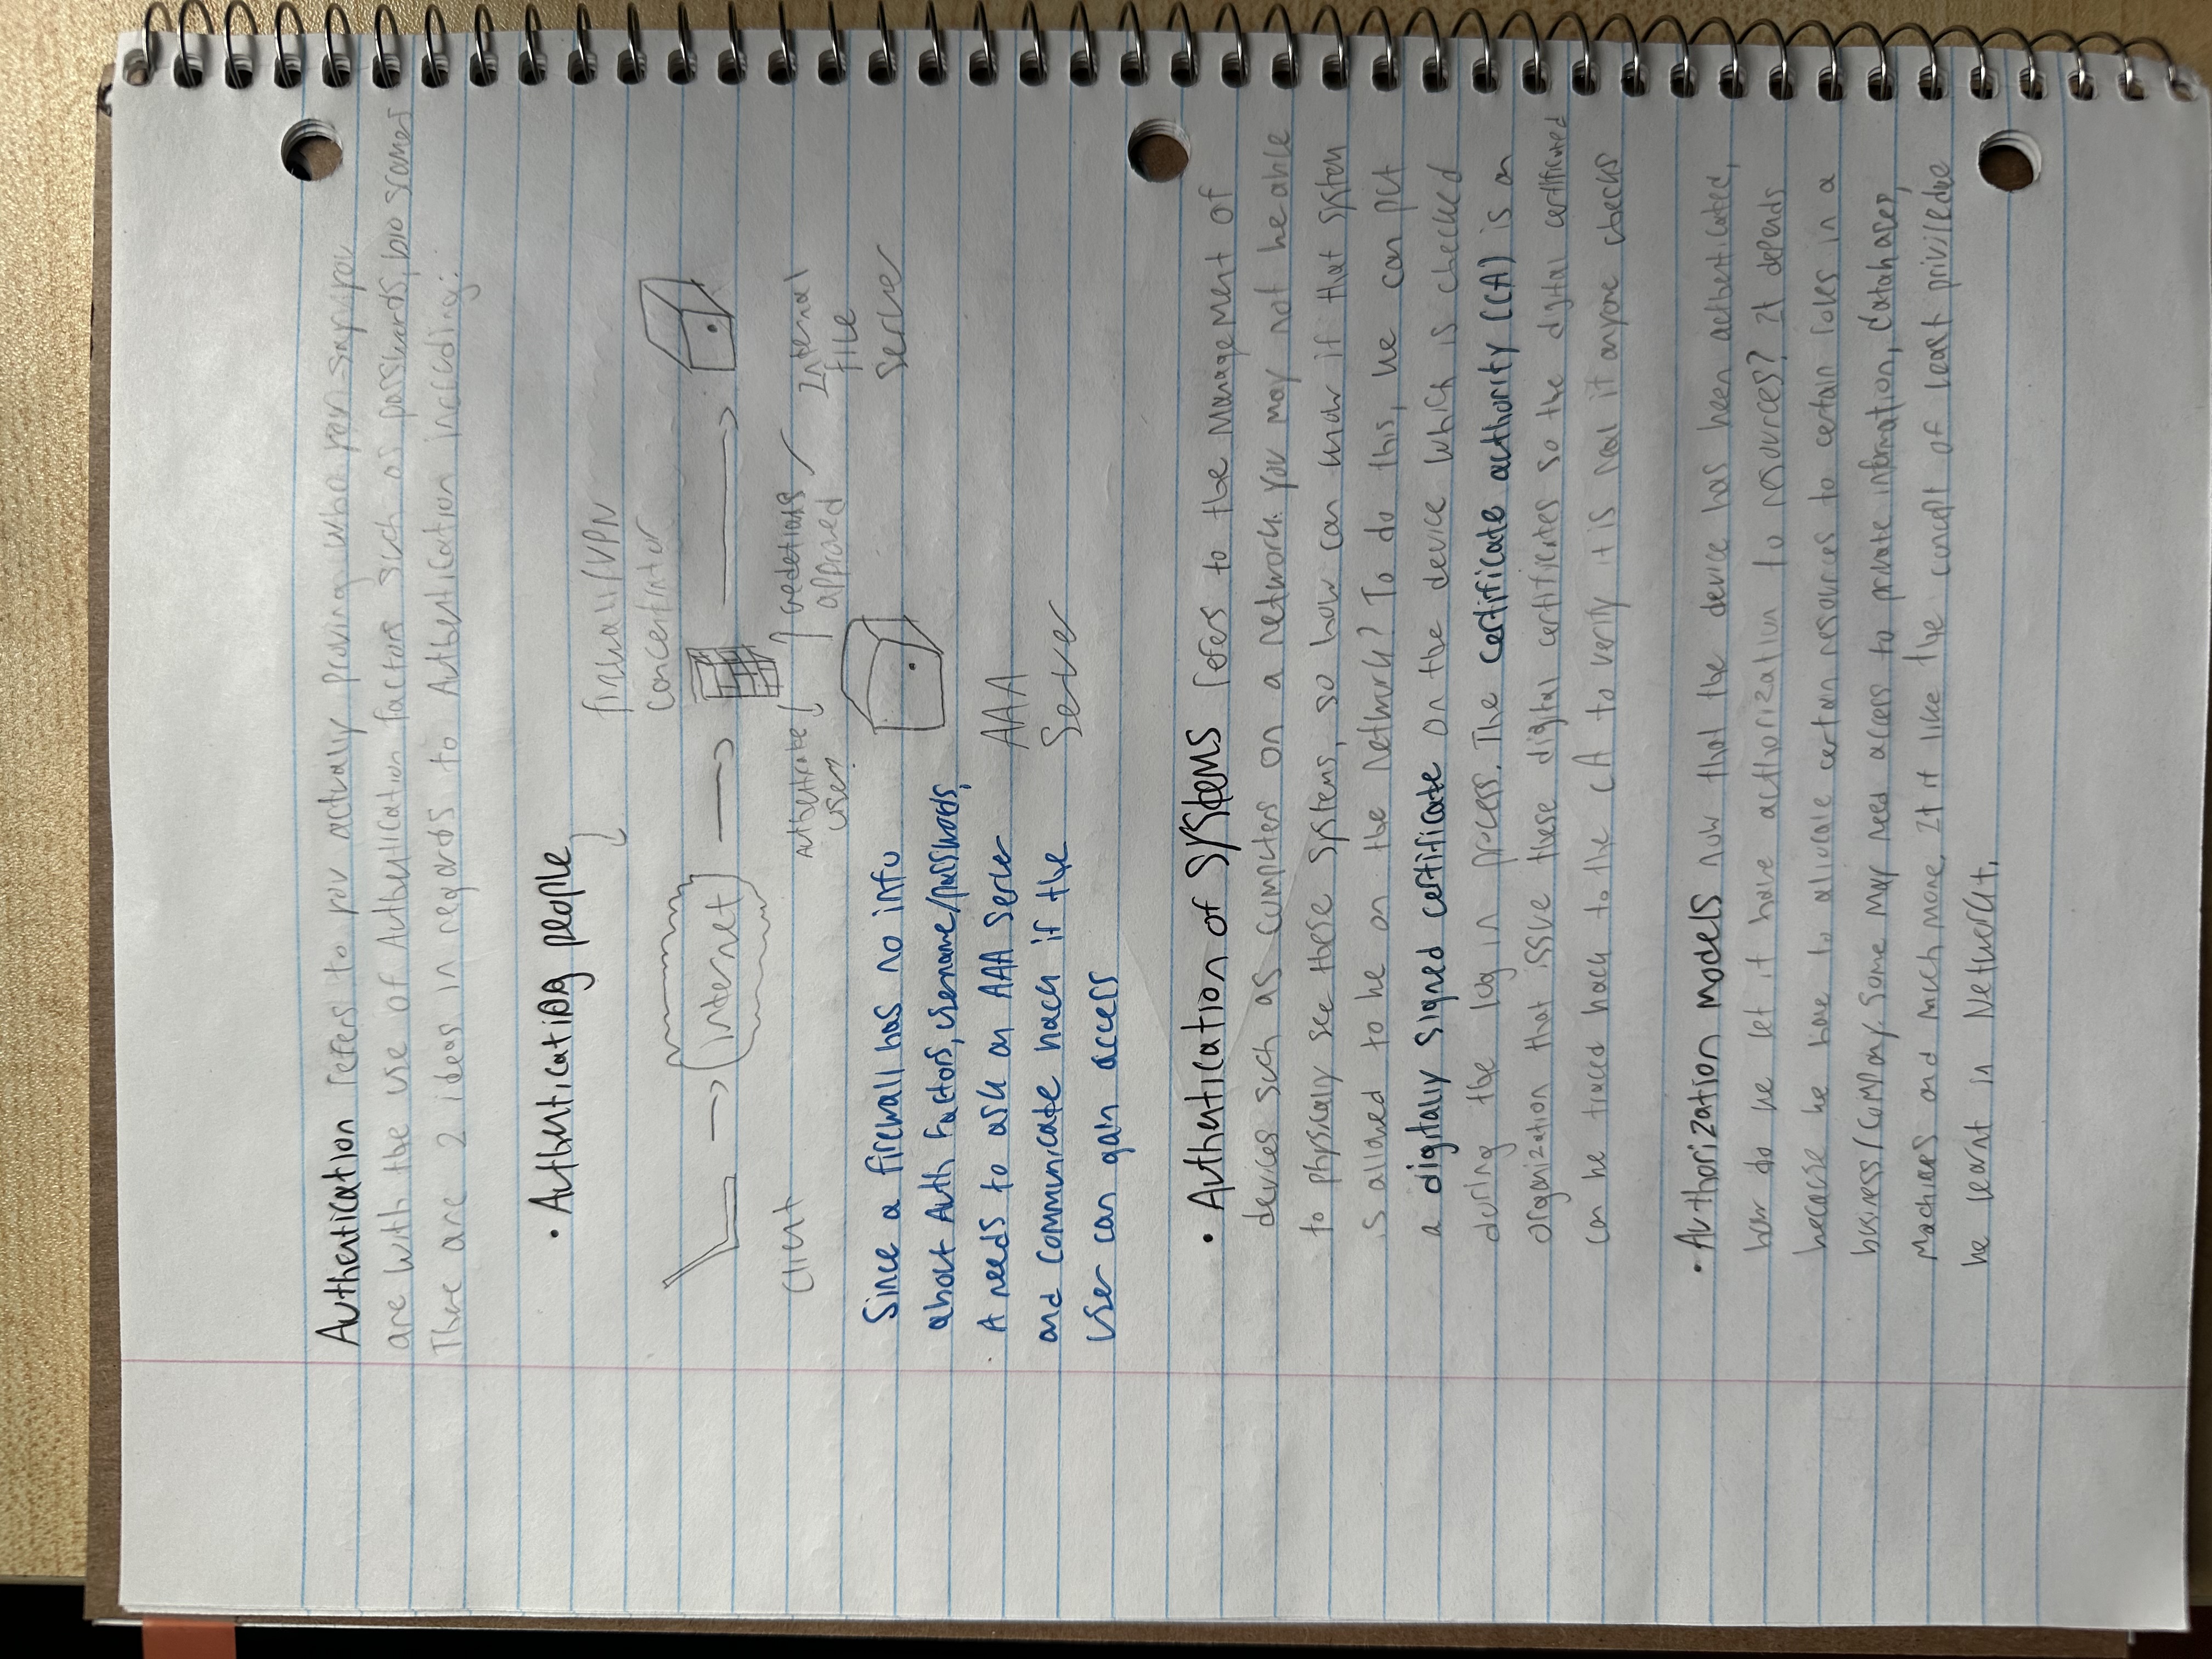 Authentication refers to you actually proving who you say you
are with the use of Authentication factors such as passwords, bio scanners
There are 2 ideas in regards to Authentication including:
• Authenticating people
firewall/VPN
concentrator
Internet
Client
Authenticate
user?
credetials
approved
Internal
file
server
Since a firewall has no info
about Auth Factors, username/passwords,
A needs to ask an AAA server
and communicate back if the
user can gain access
AAA
Server
• Authentication of systems refers to the management of
devices such as computers on a network. you may not be able
to physically see these systems, so how can know if that system
is allowed to be on the network? To do this, we can put
a digitally signed certificate on the device which is checked
during the log in process. The certificate authority (CA) is an
organization that issue these digital certificates so the digital certificated
can be traced back to the CA to verify it is real if anyone checks
• Authorization models now that the device has been authenticated,
how do we let it have authorization to resources? It depends
because we have to allocate certain resources to certain roles in a
business/company. Some may need access to private information, databases,
machines and much more. It it like the concept of least priviledge
we learnt in Network+.